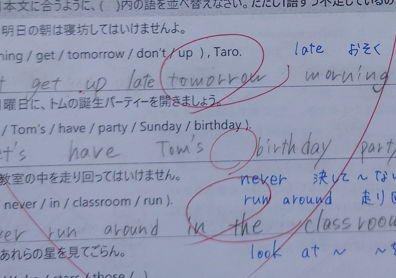 本文に合うように、( )内の語を並べ替えなさい。ただし1語ずつ不足している
明日の朝は寝坊してはいけませんよ。
ning / get / tomorrow / don't / up ) , Taro. late おそく
get up late tomorrow morning
曜日に、トムの誕生パーティーを開きましょう。
/ Tom's / have / party / Sunday / birthday ).
et's have Tom's birthday party
教室の中を走り回ってはいけません。 never 決して〜ない
never / in / classroom / run ). run around 走り回
er run around in the classroom
あれらの星を見てごらん。 look at 〜 〜を
/ stars / those /